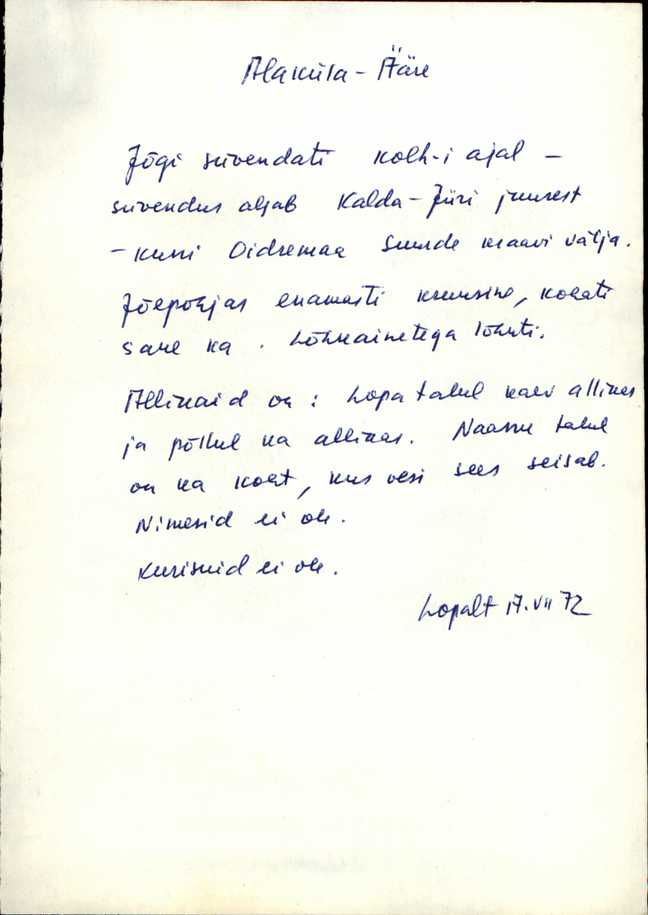 Alaküla - Ääre
Jõgi süvendati kolh-i ajal -
süvendus algab Kalda-Jüri juurest
- kuni Oidremaa suurde kraavi välja.
Jõepõhjas enamasti kruusine, kohati
saue ka. Lõhkainetega lõhuti.
Allikaid on: Lopa talul kaev allikas
ja põllul ka allikas. Naarme talul
on ka koht, kus vesi sees seisab.
Nimesid ei ole.
Kurisuid ei ole.
Lopalt 17. VII 72